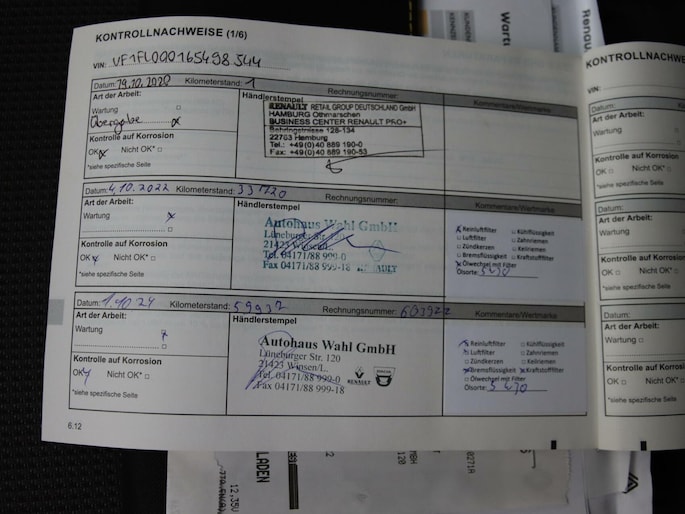 KONTROLLNACHWEISE (1/6)
VIN: VF1FL000165498544
Datum: 19.10.2020 Kilometerstand: 1 Rechnungsnummer:
Art der Arbeit:
Wartung □
Übergabe x
Kontrolle auf Korrosion
OK x Nicht OK* □
*siehe spezifische Seite
Händlerstempel
RENAULT RETAIL GROUP DEUTSCHLAND GmbH
HAMBURG Othmarschen
BUSINESS CENTER RENAULT PRO+
Behringstrasse 128-134
22763 Hamburg
Tel.: +49(0)40 889 190-0
Fax: +49(0)40 889 190-53
Kommentare/Wertmarke
Datum: 4.10.2022 Kilometerstand: 33720 Rechnungsnummer:
Art der Arbeit:
Wartung x
Kontrolle auf Korrosion
OK x Nicht OK* □
*siehe spezifische Seite
Händlerstempel
Autohaus Wahl GmbH
Lüneburger Str. 120
21423 Winsen/L.
Tel. 04171/88 999-0
Fax 04171/88 999-18 RENAULT
Kommentare/Wertmarke
x Reinluftfilter □ Kühlflüssigkeit
□ Luftfilter □ Zahnriemen
□ Zündkerzen □ Keilriemen
□ Bremsflüssigkeit □ Kraftstofffilter
x Ölwechsel mit Filter
Ölsorte: 5W30
Datum: 1.10.24 Kilometerstand: 59937 Rechnungsnummer:
Art der Arbeit:
Wartung x
Kontrolle auf Korrosion
OK x Nicht OK* □
*siehe spezifische Seite
Händlerstempel
Autohaus Wahl GmbH
Lüneburger Str. 120
21423 Winsen/L.
Tel. 04171/88 999-0
Fax 04171/88 999-18
RENAULT DACIA
Kommentare/Wertmarke
x Reinluftfilter □ Kühlflüssigkeit
x Luftfilter □ Zahnriemen
□ Zündkerzen □ Keilriemen
x Bremsflüssigkeit x Kraftstofffilter
□ Ölwechsel mit Filter
Ölsorte: 5W30
6.12
KONTROLLNACHWE
VIN:
Datum:
Art der Arbeit:
Wartung
Kontrolle auf Korrosion
OK □ Nicht OK*
*siehe spezifische Seite
Datum:
Art der Arbeit:
Wartung
Kontrolle auf Korro
OK □ Nicht OK*
*siehe spezifische Seite
Datum:
Art der Arbeit:
Wartung
Kontrolle auf K
OK □ Nicht
*siehe spezifische
KUNDEN
KENNZE
Wart
Renau
LADEN
12,35V
MBH
120
0271R